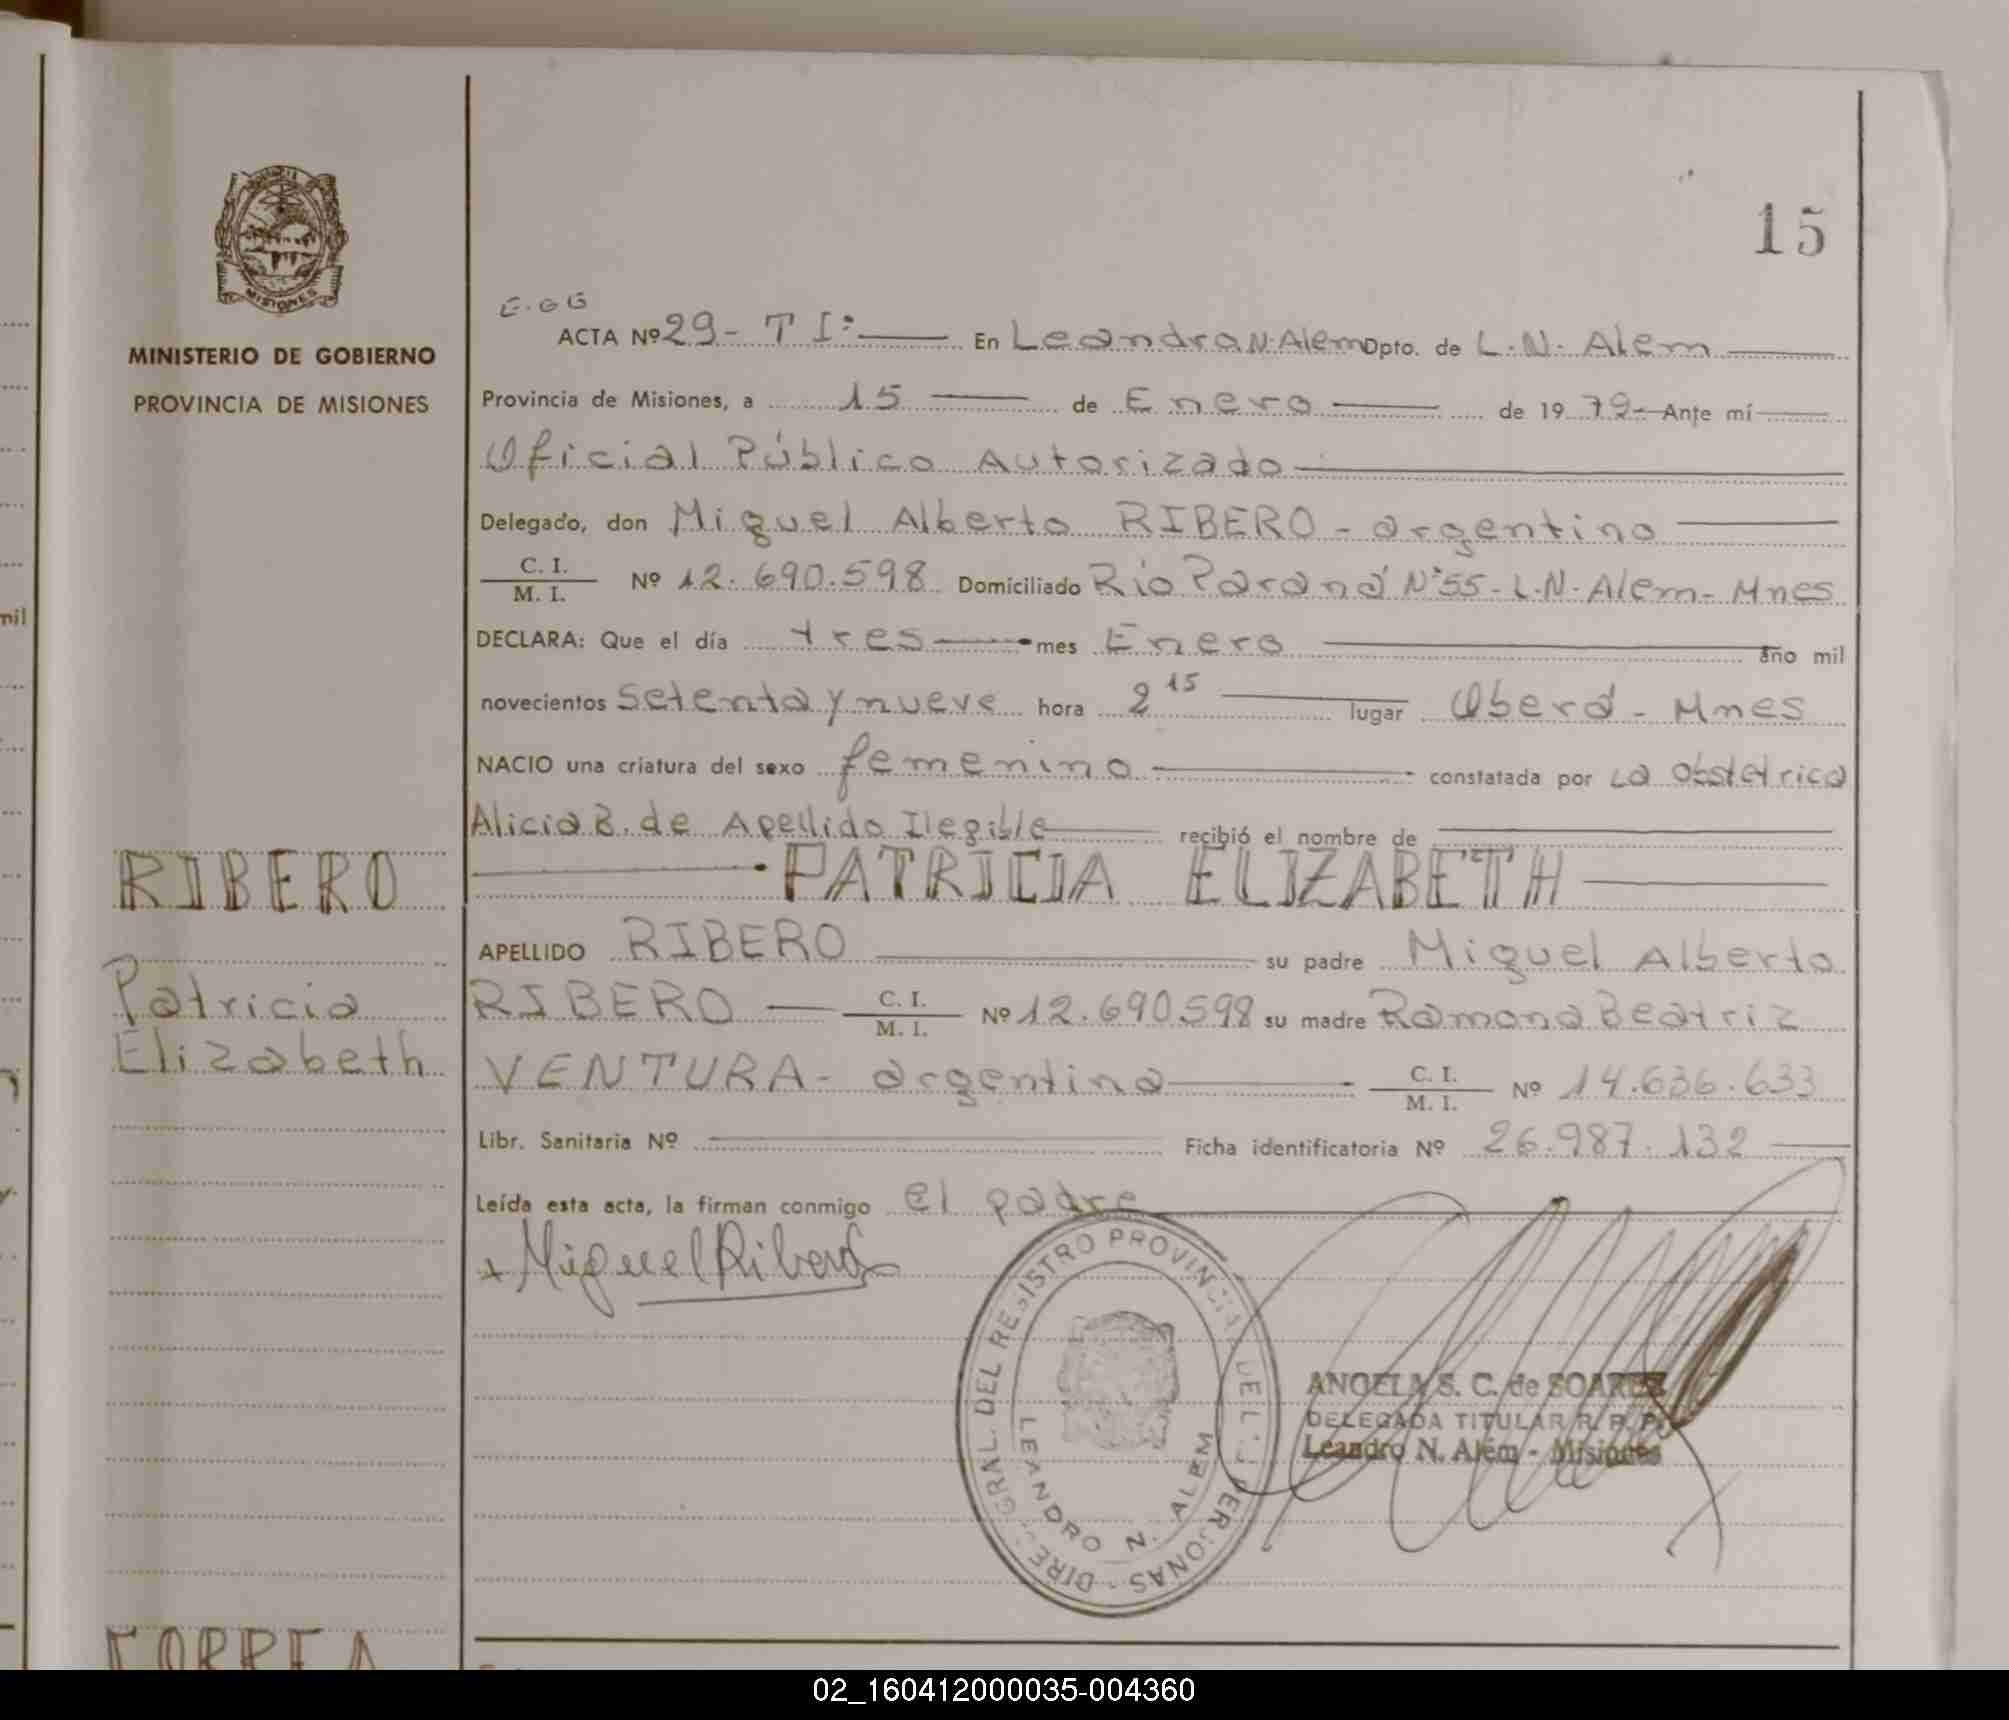 15
E.GG
ACTA Nº 29- T Iº En Leandro N. Alem Dpto. de L.N. Alem
MINISTERIO DE GOBIERNO
PROVINCIA DE MISIONES
MISIONES
Provincia de Misiones, a 15 de Enero de 19 79- Ante mí
Oficial Público Autorizado
Delegado, don Miguel Alberto RIBERO - argentino
C. I. / M. I. Nº 12.690.598 Domiciliado Río Paraná Nº55-L.N.Alem-Mnes
DECLARA: Que el día tres mes Enero año mil
novecientos setenta y nueve hora 2 15 lugar Oberá - Mnes
NACIO una criatura del sexo femenino constatada por La obstetrica
Alicia B. de Apellido Ilegible recibió el nombre de
PATRICIA ELIZABETH
RIBERO
Patricia
Elizabeth
APELLIDO RIBERO su padre Miguel Alberto
RIBERO C. I. / M. I. Nº 12.690.598 su madre Ramona Beatriz
VENTURA- argentina C. I. / M. I. Nº 14.636.633
Libr. Sanitaria Nº Ficha identificatoria Nº 26.987.132
Leída esta acta, la firman conmigo el padre
+ Miguel Ribero
DIRE. GRAL. DEL REGISTRO PROVINCIAL DE L S PERSONAS
LEANDRO N. ALEM
ANGELA S. C. de SOAREZ
DELEGADA TITULAR R. P. P.
Leandro N. Além - Misiones
CORREA
mil
02_160412000035-004360